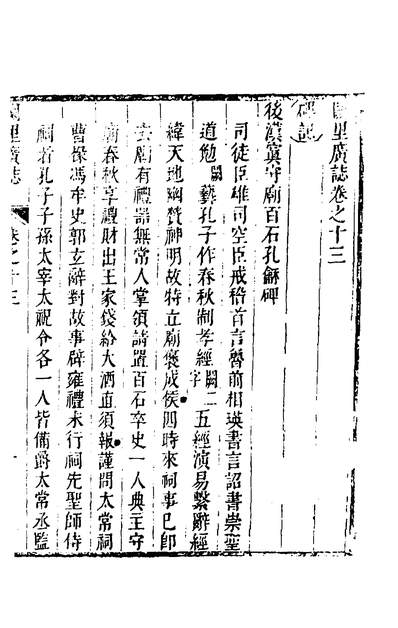 里廣誌卷之十三
碑記
後漢寘守廟百石孔龢碑
司徒臣雄司空臣戒稽首言魯前相瑛書言詔書崇聖
道勉闕藝孔子作春秋制孝經闕二字五經演易繫辭經
緯天地幽贊神明故特立廟褒成侯四時來祠事已卽
去廟有禮器無常人掌領請置百石卒史一人典主守
廟春秋享禮財出王家錢給犬酒直須報謹問太常祠
曹掾馮牟史郭玄辭對故事辟雍禮未行祠先聖師侍
祠者孔子子孫太宰太祝令各一人皆備爵太常丞監
里廣誌 卷之十三